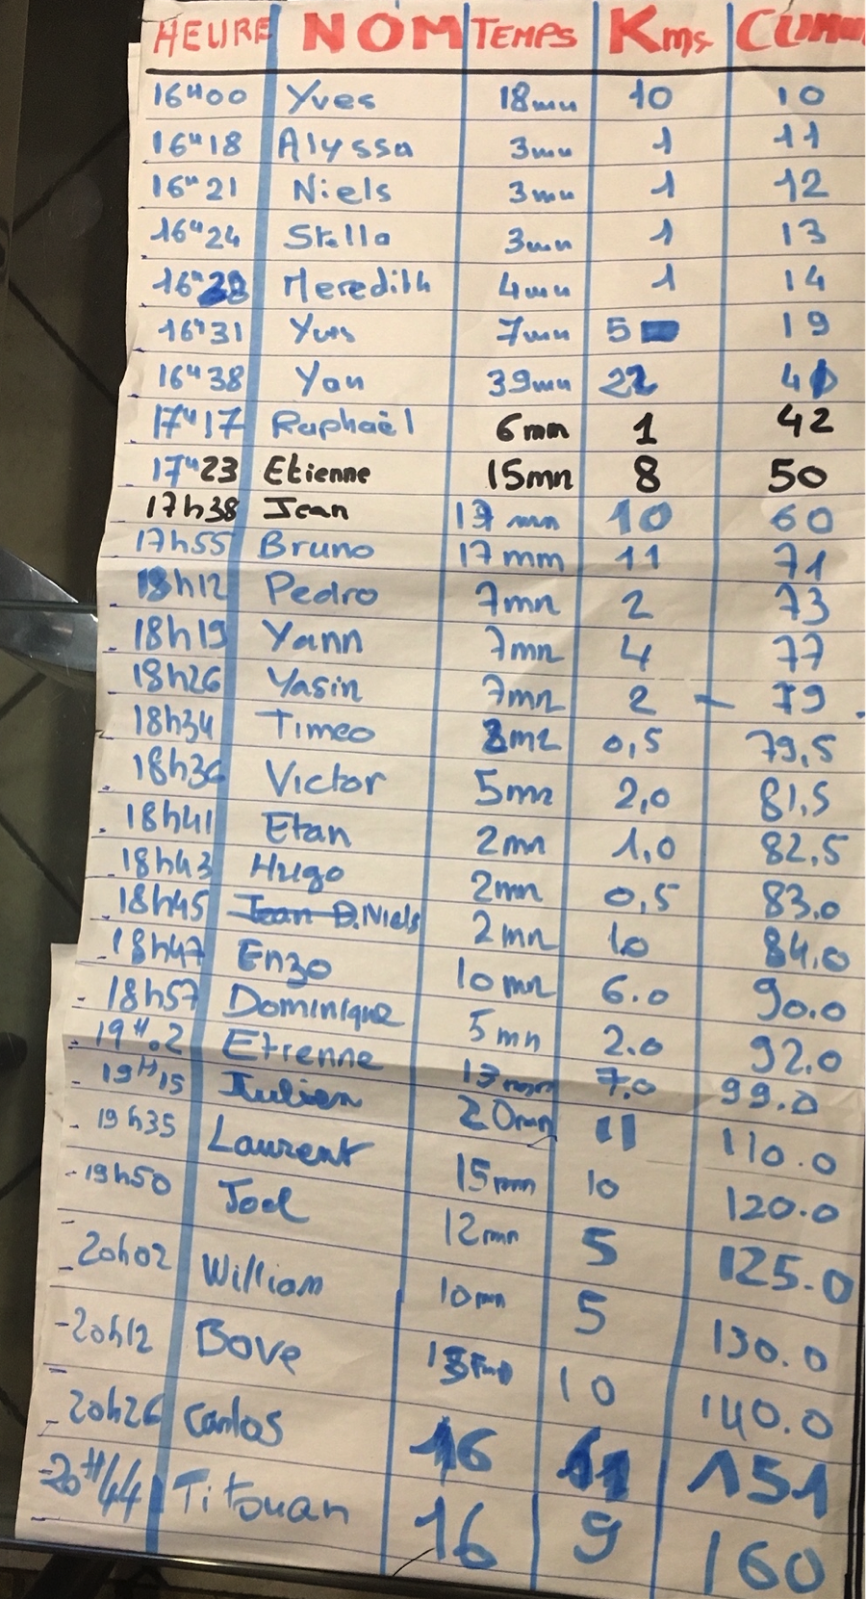 HEURE NOM TEMPS Kms CUMUL
16H00 Yves 18mn 10 10
16H18 Alyssa 3mn 1 11
16H21 Niels 3mn 1 12
16H24 Stella 3mn 1 13
Meredith 4mn 1 14
16H31 Yves 7mn 5 19
16H38 Yan 39mn 22 41
17H17 Raphaël 6mn 1 42
17H23 Etienne 15mn 8 50
17h38 Jean 17 mn 10 60
17h55 Bruno 17mm 11 71
18h12 Pedro 7mn 2 73
18h19 Yann 7mn 4 77
18h26 Yasin 7mn 2 - 79
18h34 Timeo 0,5 79,5
18h36 Victor 5mn 2,0 81,5
18h41 Etan 2mn 1,0 82,5
18h43 Hugo 2mn 0,5 83.0
18h45 Jean D. Niels 2mn 10 84,0
18h47 Enzo 10mn 6.0 90.0
18h57 Dominique 5mn 2.0 92.0
19H.2 Etienne 13mn 7.0 99.0
19H15 Julien 20mn 11 110.0
19h35 Laurent 15mn 10 120.0
19h50 Joel 12mn 5 125.0
20h02 William 10mn 5 130.0
20h12 Bove 10 140.0
20h26 Carlos 16 11 151
20H44 Titouan 16 9 160